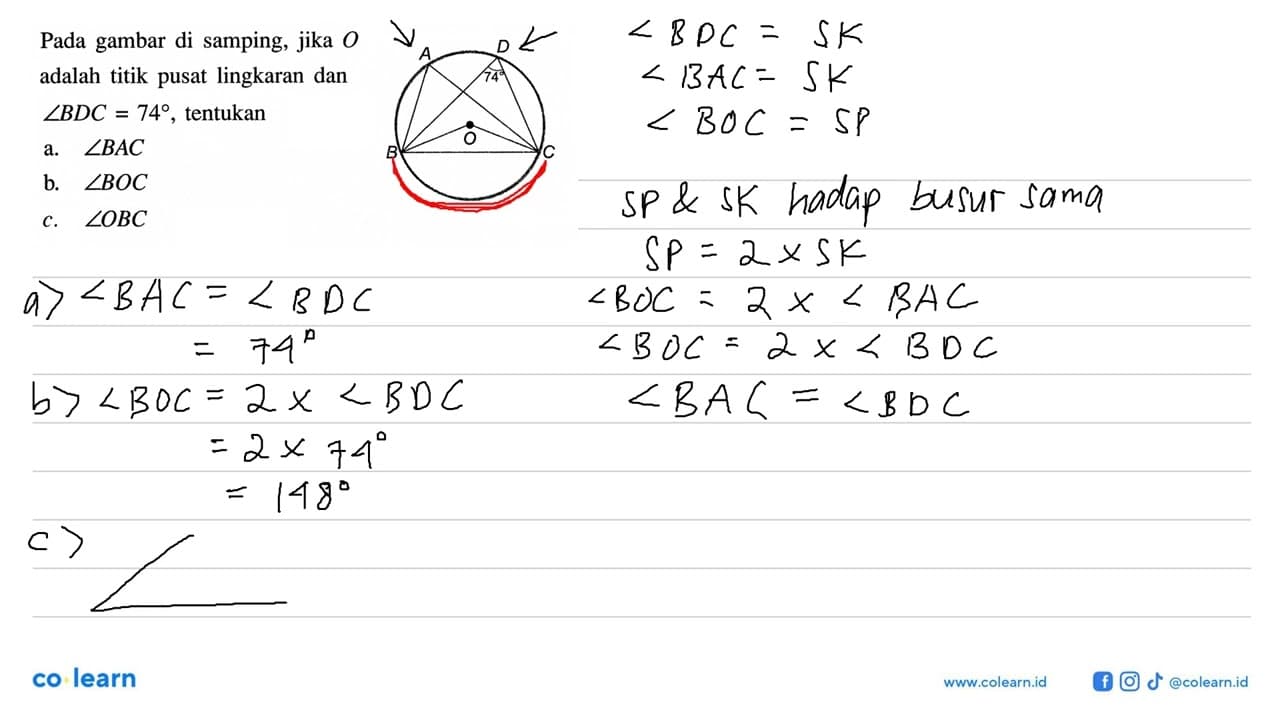 Pada gambar di samping, jika O
adalah titik pusat lingkaran dan
∠BDC = 74°, tentukan
a. ∠BAC
b. ∠BOC
c. ∠OBC
A
D
74°
O
B
C
∠BDC = SK
∠BAC = SK
∠BOC = SP
SP & SK hadap busur sama
SP = 2 x SK
∠BOC = 2 x ∠BAC
∠BOC = 2 x ∠BDC
∠BAC = ∠BDC
a> ∠BAC = ∠BDC
= 74°
b> ∠BOC = 2 x ∠BDC
= 2 x 74°
= 148°
c>
co learn
www.colearn.id
@colearn.id